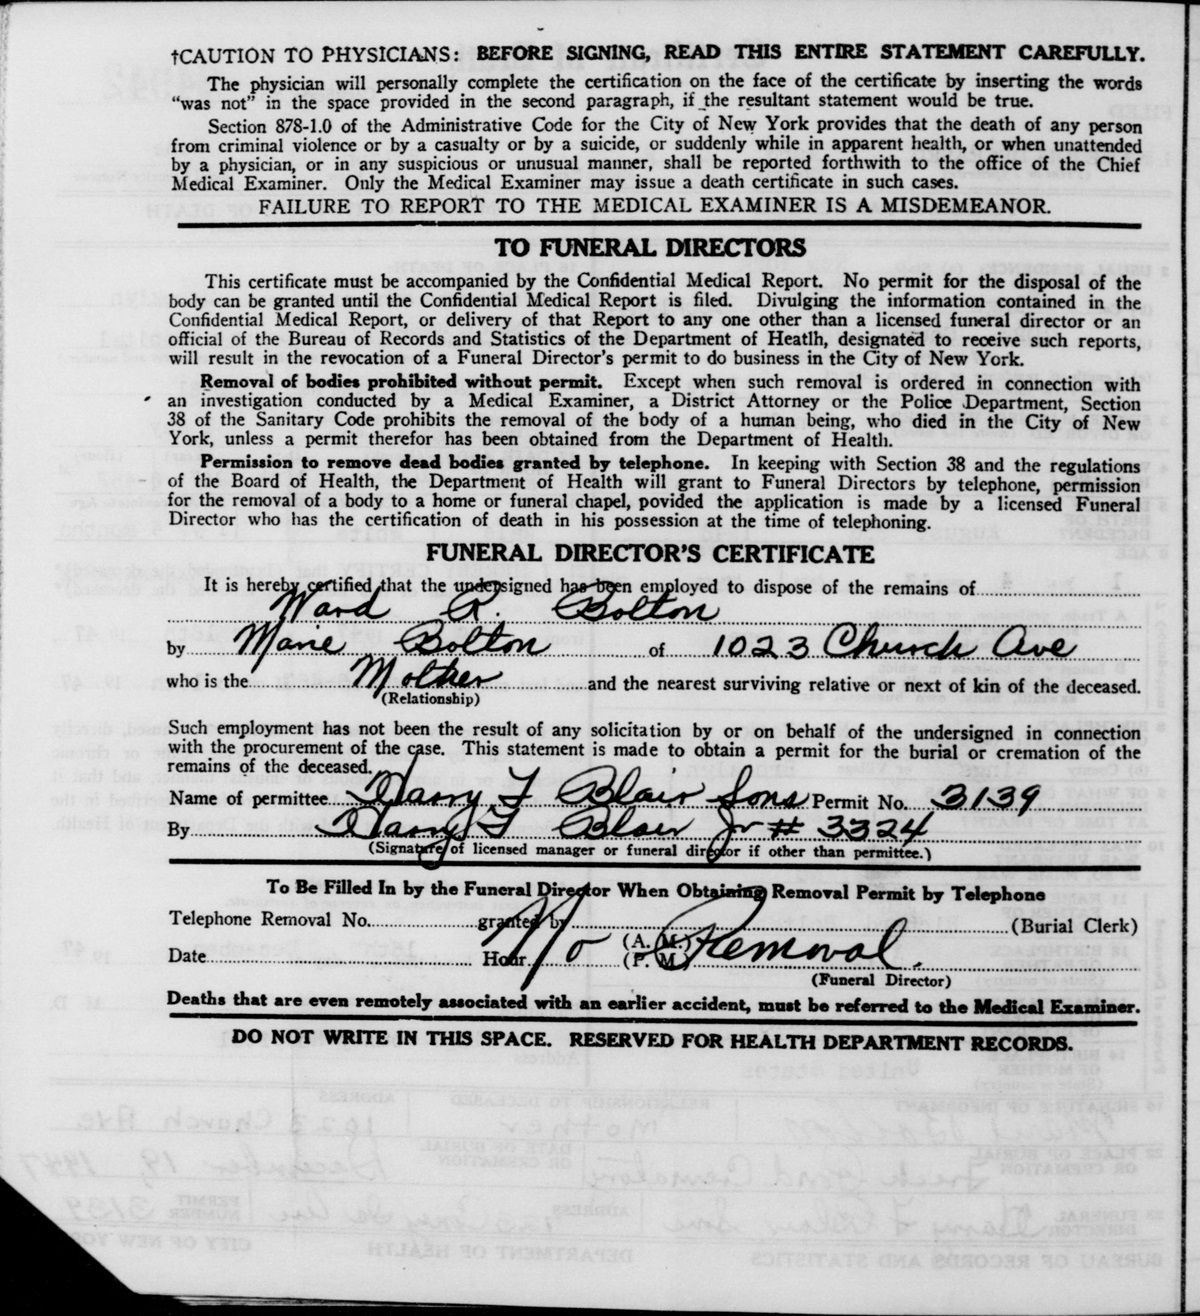 †CAUTION TO PHYSICIANS: BEFORE SIGNING, READ THIS ENTIRE STATEMENT CAREFULLY.
The physician will personally complete the certification on the face of the certificate by inserting the words
“was not” in the space provided in the second paragraph, if the resultant statement would be true.
Section 878-1.0 of the Administrative Code for the City of New York provides that the death of any person
from criminal violence or by a casualty or by a suicide, or suddenly while in apparent health, or when unattended
by a physician, or in any suspicious or unusual manner, shall be reported forthwith to the office of the Chief
Medical Examiner. Only the Medical Examiner may issue a death certificate in such cases.
FAILURE TO REPORT TO THE MEDICAL EXAMINER IS A MISDEMEANOR.
TO FUNERAL DIRECTORS
This certificate must be accompanied by the Confidential Medical Report. No permit for the disposal of the
body can be granted until the Confidential Medical Report is filed. Divulging the information contained in the
Confidential Medical Report, or delivery of that Report to any one other than a licensed funeral director or an
official of the Bureau of Records and Statistics of the Department of Heatlh, designated to receive such reports,
will result in the revocation of a Funeral Director's permit to do business in the City of New York.
Removal of bodies prohibited without permit. Except when such removal is ordered in connection with
an investigation conducted by a Medical Examiner, a District Attorney or the Police Department, Section
38 of the Sanitary Code prohibits the removal of the body of a human being, who died in the City of New
York, unless a permit therefor has been obtained from the Department of Health.
Permission to remove dead bodies granted by telephone. In keeping with Section 38 and the regulations
of the Board of Health, the Department of Health will grant to Funeral Directors by telephone, permission
for the removal of a body to a home or funeral chapel, povided the application is made by a licensed Funeral
Director who has the certification of death in his possession at the time of telephoning.
FUNERAL DIRECTOR'S CERTIFICATE
It is hereby certified that the undersigned has been employed to dispose of the remains of
Ward R. Bolton
by Marie Bolton of 1023 Church Ave
who is the Mother and the nearest surviving relative or next of kin of the deceased.
(Relationship)
Such employment has not been the result of any solicitation by or on behalf of the undersigned in connection
with the procurement of the case. This statement is made to obtain a permit for the burial or cremation of the
remains of the deceased.
Name of permittee Harry T Blair Sons Permit No. 3139
By Harry T Blair Jr # 3324
(Signature of licensed manager or funeral director if other than permittee.)
To Be Filled In by the Funeral Director When Obtaining Removal Permit by Telephone
Telephone Removal No. granted by (Burial Clerk)
No Removal.
Date Hour (A. M.) (P. M.)
(Funeral Director)
Deaths that are even remotely associated with an earlier accident, must be referred to the Medical Examiner.
DO NOT WRITE IN THIS SPACE. RESERVED FOR HEALTH DEPARTMENT RECORDS.